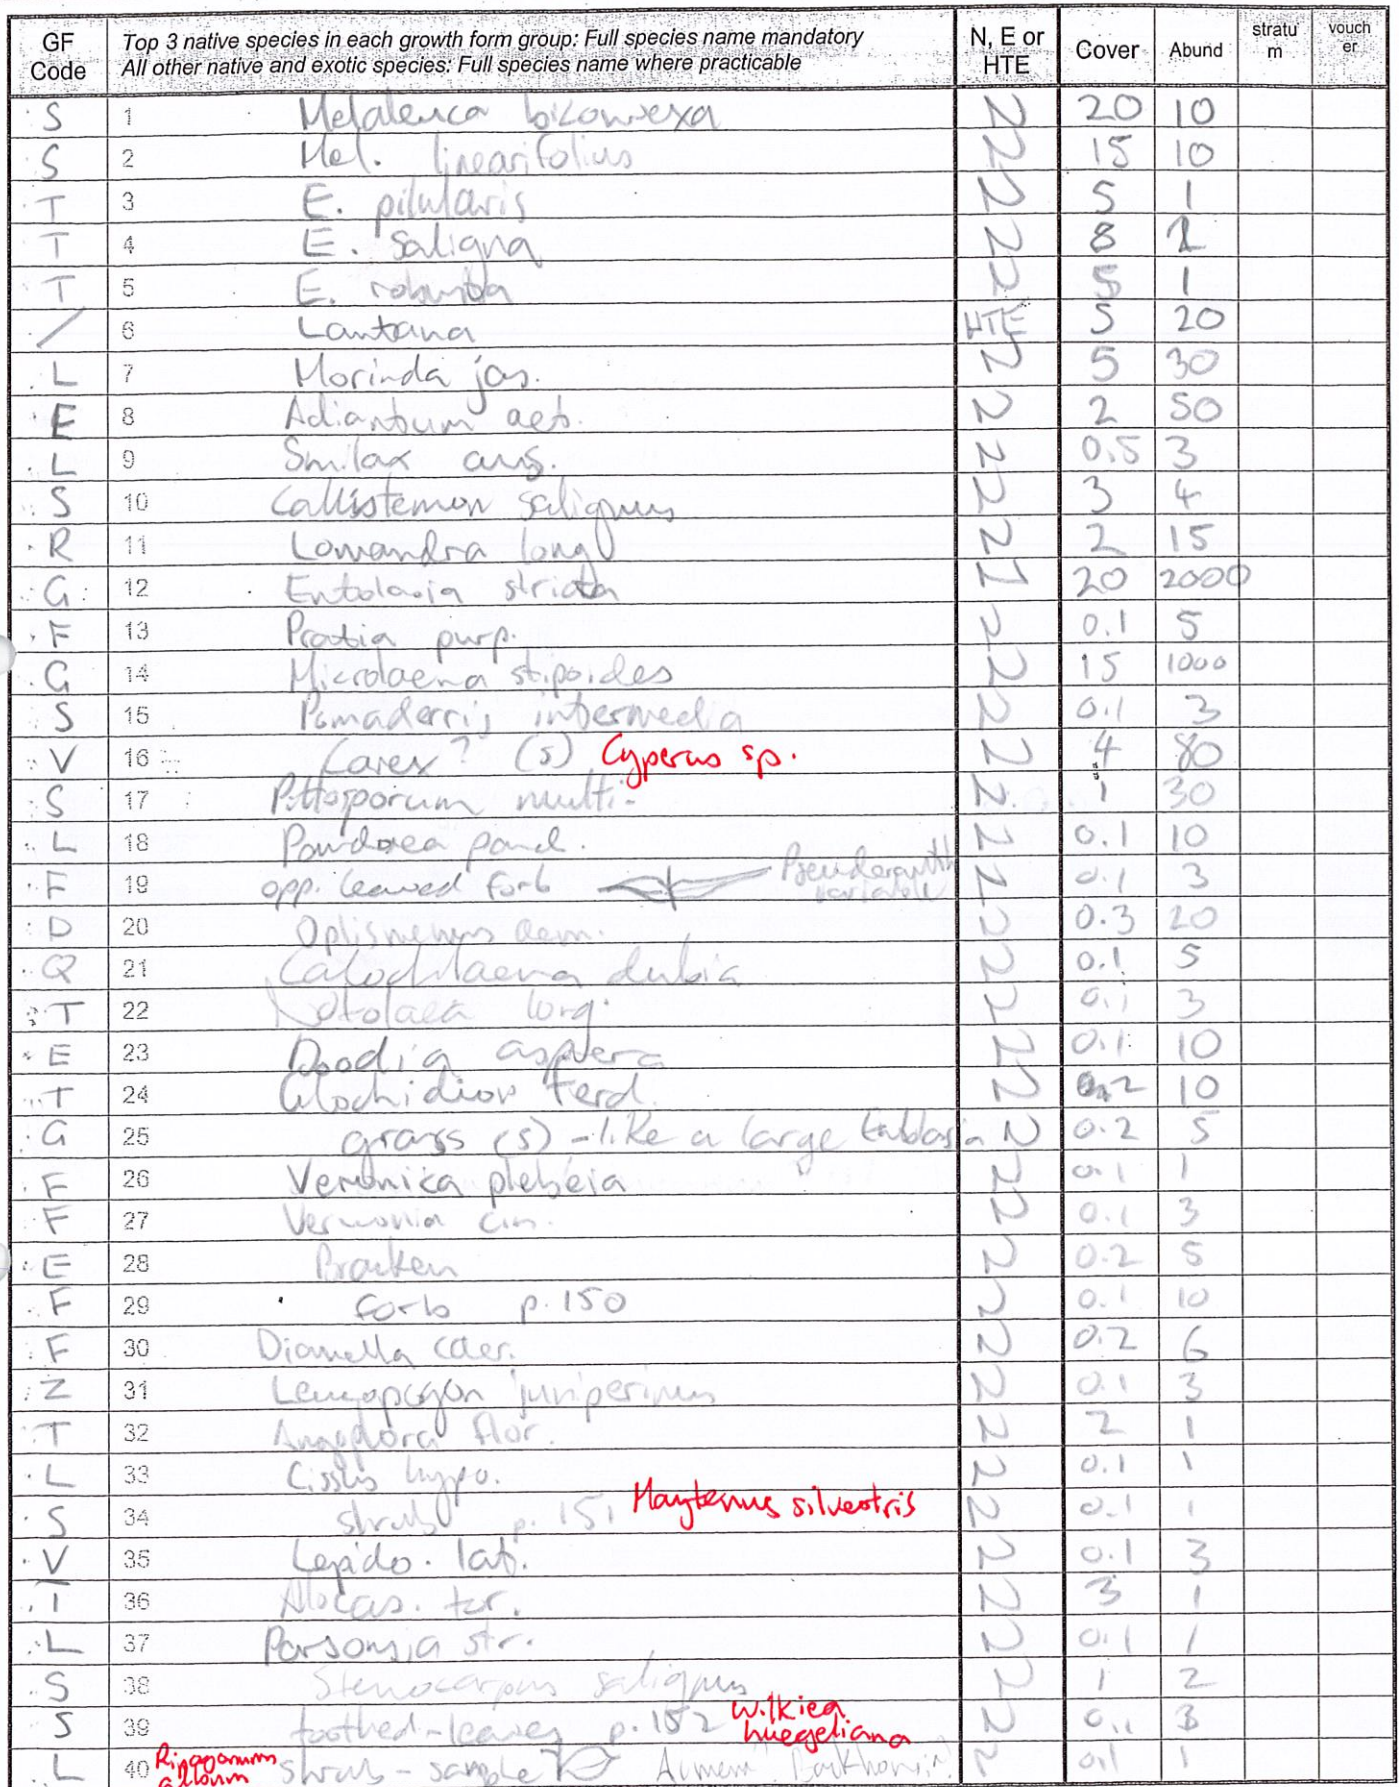 GF Code Top 3 native species in each growth form group: Full species name mandatory All other native and exotic species: Full species name where practicable N, E or HTE Cover Abund stratum voucher
S 1 Melaleuca biconvexa N 20 10
S 2 Mel. linearifolius N 15 10
T 3 E. pilularis N 5 1
T 4 E. saligna N 8
T 5 E. robusta N 5 1
/ 6 Lantana HTE 5 20
L 7 Morinda jas. N 5 30
E 8 Adiantum aet. N 2 50
L 9 Smilax aus. N 0.5 3
S 10 Callistemon salignus N 3 4
R 11 Lomandra long N 2 15
G 12 Entolasia stricta N 20 2000
F 13 Pratia purp. N 0.1 5
G 14 Microlaena stipoides N 15 1000
S 15 Pomaderris intermedia N 0.1 3
V 16 Carex? (s) Cyperus sp. N 4 80
S 17 Pittosporum multi- N 1 30
L 18 Pandorea pand. N 0.1 10
F 19 opp. leaved forb Pseuderanth variable N 0.1 3
D 20 Oplismenus aem. N 0.3 20
Q 21 Calochlaena dubia N 0.1 5
T 22 Notolaea long. N 0.1 3
E 23 Doodia aspera N 0.1 10
T 24 Glochidion ferd. N 0.2 10
G 25 grass (s) - like a large Entolasia N 0.2 5
F 26 Veronica plebeia N 0.1 1
F 27 Vernonia cin. N 0.1 3
E 28 Bracken N 0.2 5
F 29 forb p.150 N 0.1 10
F 30 Dianella caer. N 0.2 6
Z 31 Leucopogon juniperinus N 0.1 3
T 32 Angophora flor. N 2 1
L 33 Cissus hypo. N 0.1 1
S 34 shrub p.151 Maytenus silvestris N 0.1 1
V 35 Lepido. lat. N 0.1 3
T 36 Allocas. tor. N 3 1
L 37 Parsonsia str. N 0.1 1
S 38 Stenocarpus salignus N 1 2
S 39 toothed-leaves p.152 Wilkiea huegeliana N 0.1 3
L 40 shrub - sample N 0.1 1